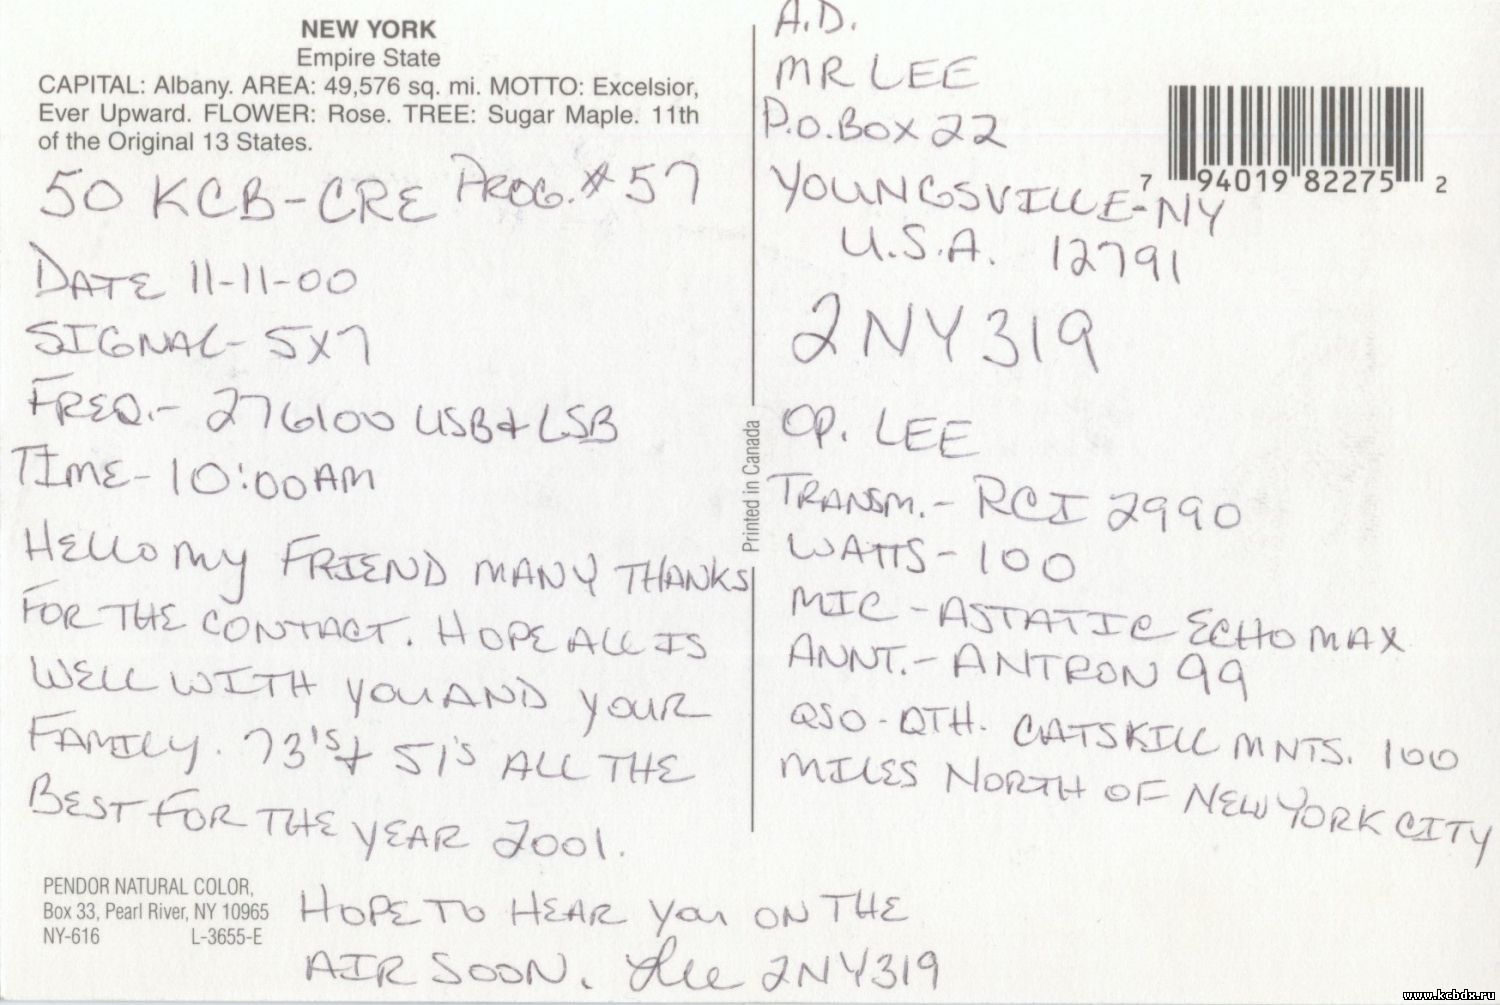 NEW YORK
Empire State
CAPITAL: Albany. AREA: 49,576 sq. mi. MOTTO: Excelsior,
Ever Upward. FLOWER: Rose. TREE: Sugar Maple. 11th
of the Original 13 States.
50 KCB-CRE PROG. # 57
DATE 11-11-00
SIGNAL- 5X7
FREQ.- 276100 USB & LSB
TIME- 10:00AM
HELLO MY FRIEND MANY THANKS
FOR THE CONTACT. HOPE ALL IS
WELL WITH YOU AND YOUR
FAMILY. 73's & 51's ALL THE
BEST FOR THE YEAR 2001.
HOPE TO HEAR YOU ON THE
AIR SOON. Lee 2NY319
PENDOR NATURAL COLOR,
Box 33, Pearl River, NY 10965
NY-616 L-3655-E
Printed in Canada
A.D.
MR LEE
P.O. BOX 22
YOUNGSVILLE-NY
U.S.A. 12791
7 94019 82275 2
2NY319
OP. LEE
TRANSM.- RCI 2990
WATTS- 100
MIC - ASTATIC ECHO MAX
ANNT.- ANTRON 99
QSO-QTH. CATSKILL MNTS. 100
MILES NORTH OF NEW YORK CITY
www.kcbdx.ru